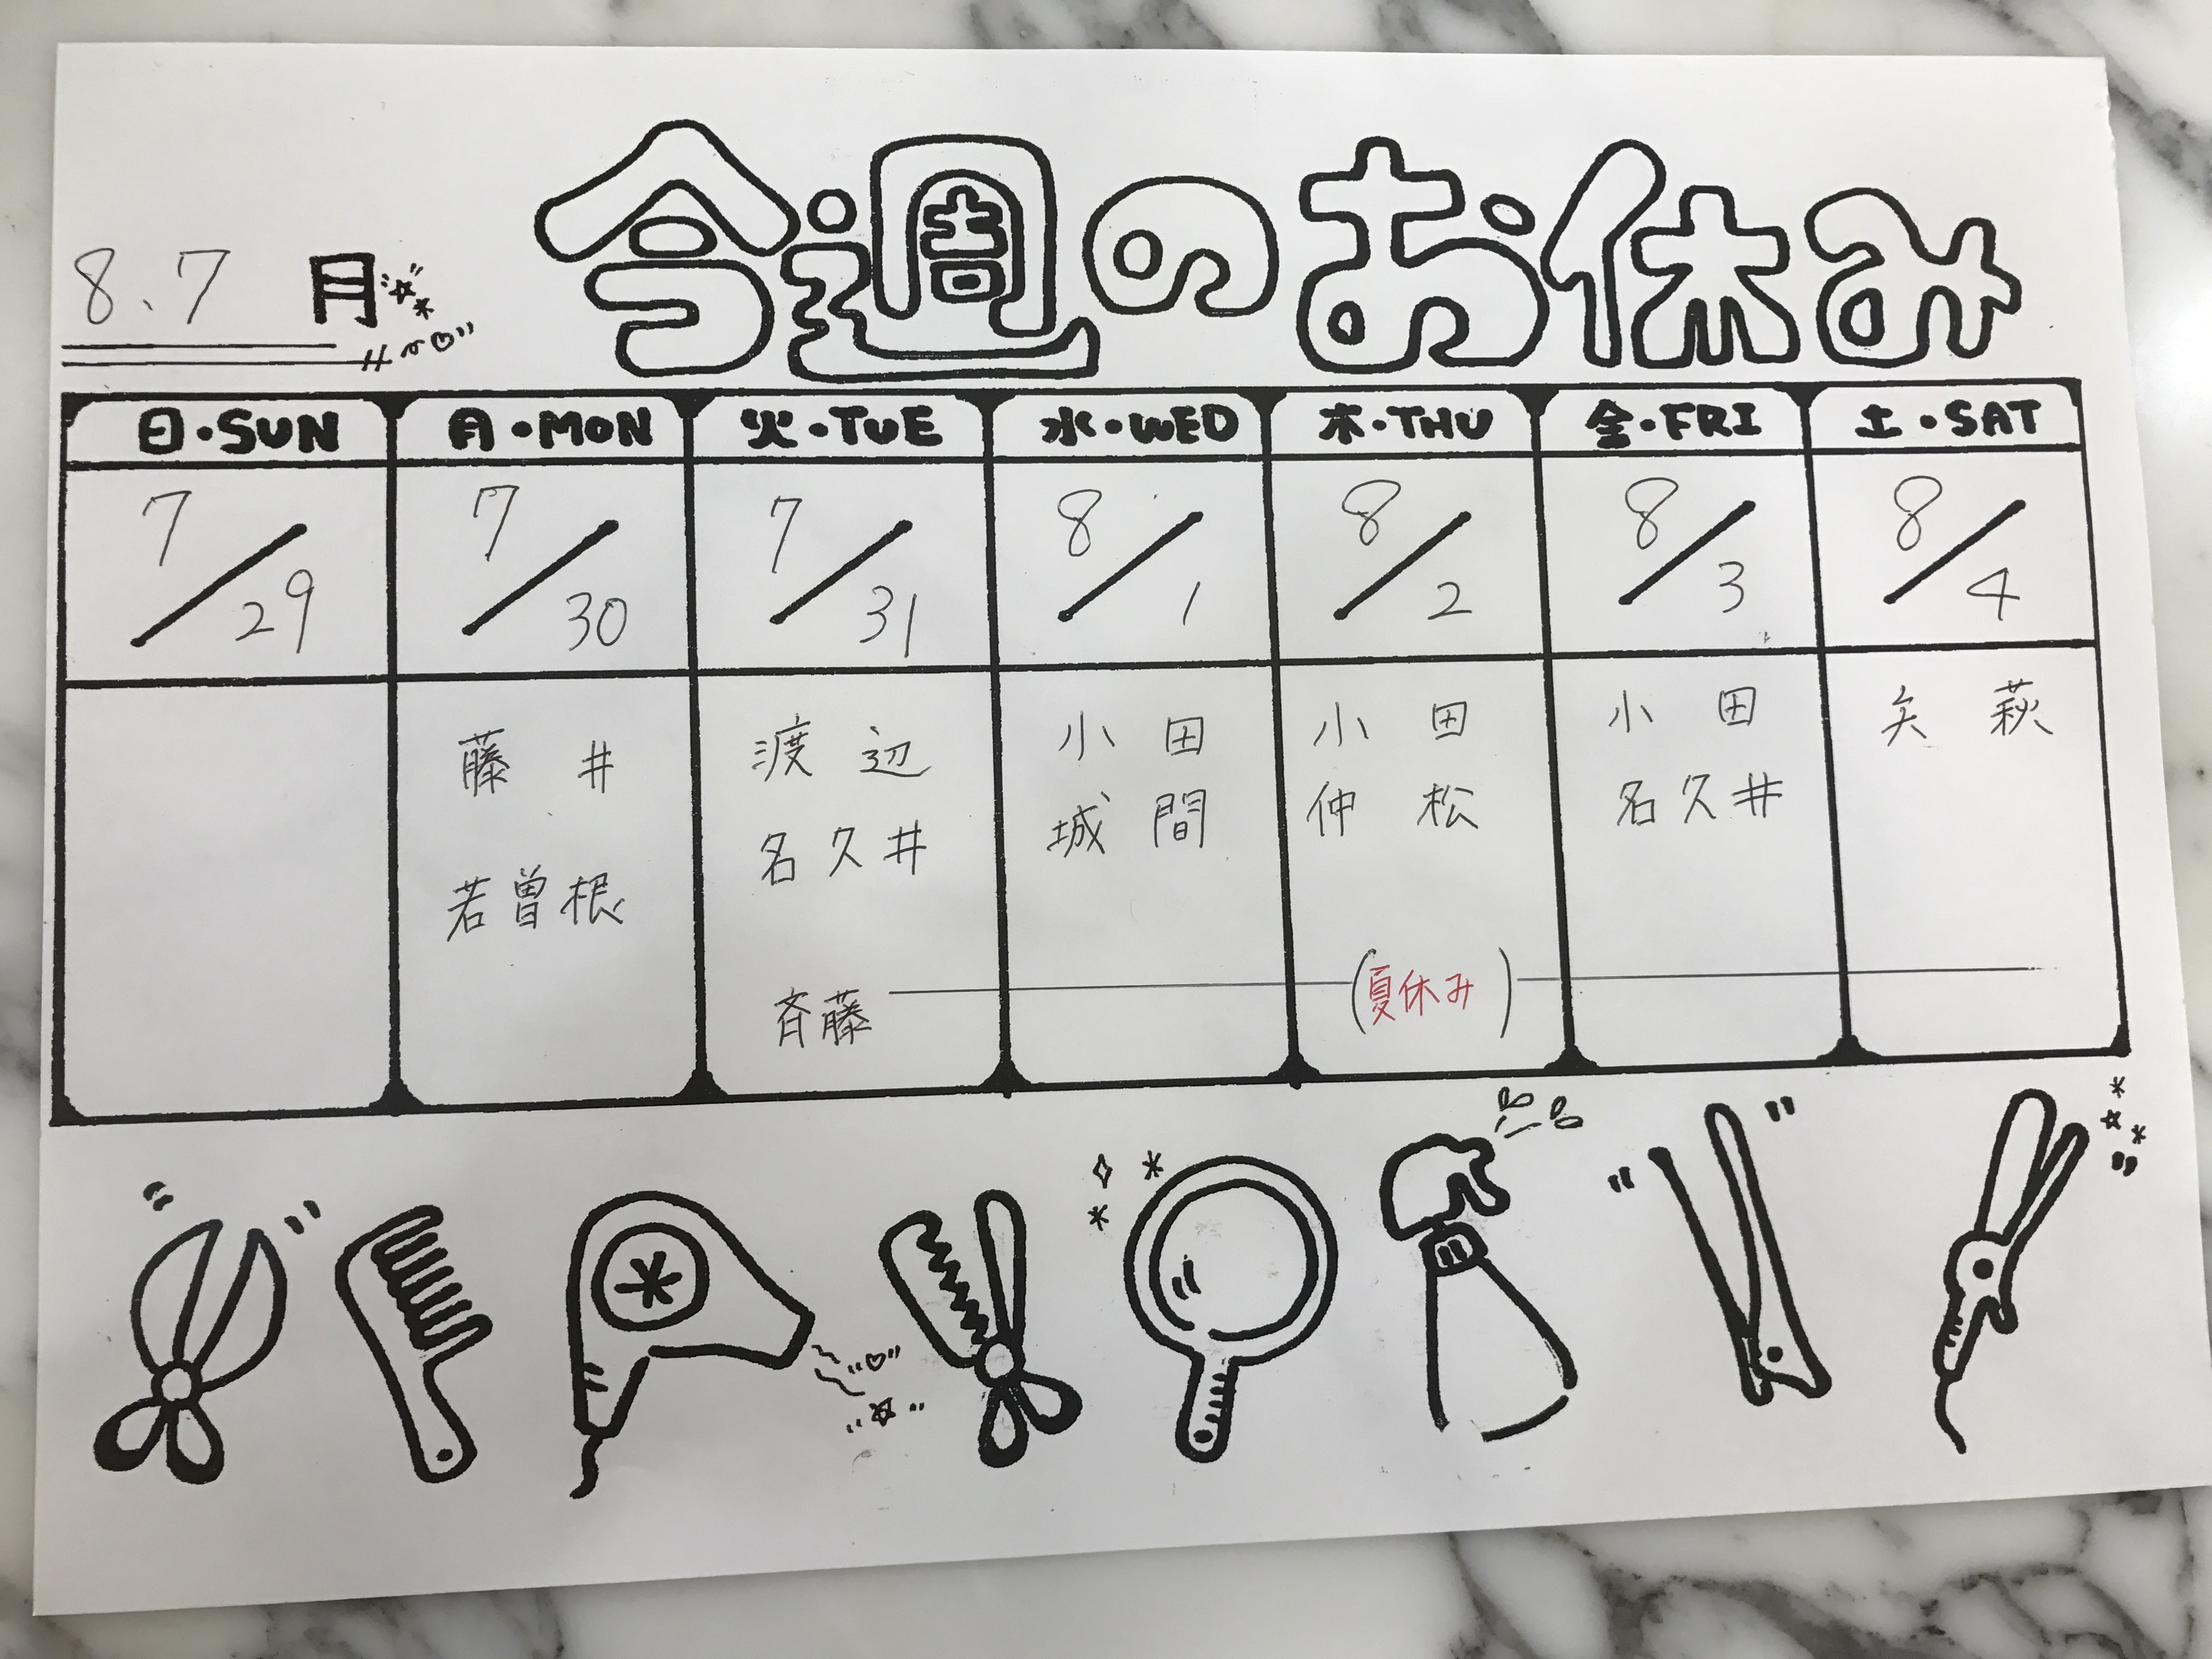 今週のお休み
8、7 月
日・SUN 月・MON 火・TUE 水・WED 木・THU 金・FRI 土・SAT
7/29 7/30 7/31 8/1 8/2 8/3 8/4
藤井 渡辺 小田 小田 小田 矢萩
若曽根 名久井 城間 仲松 名久井
斉藤 (夏休み)